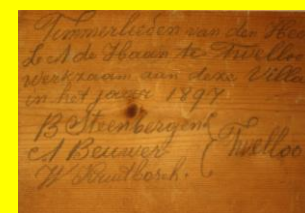 Timmerlieden van den Heer
L. A de Haan te Twelloo
werkzaam aan deze Villa
in het jaar 1897
B Steenbergen
A Beuwer } Twelloo
W Kruitbosch.